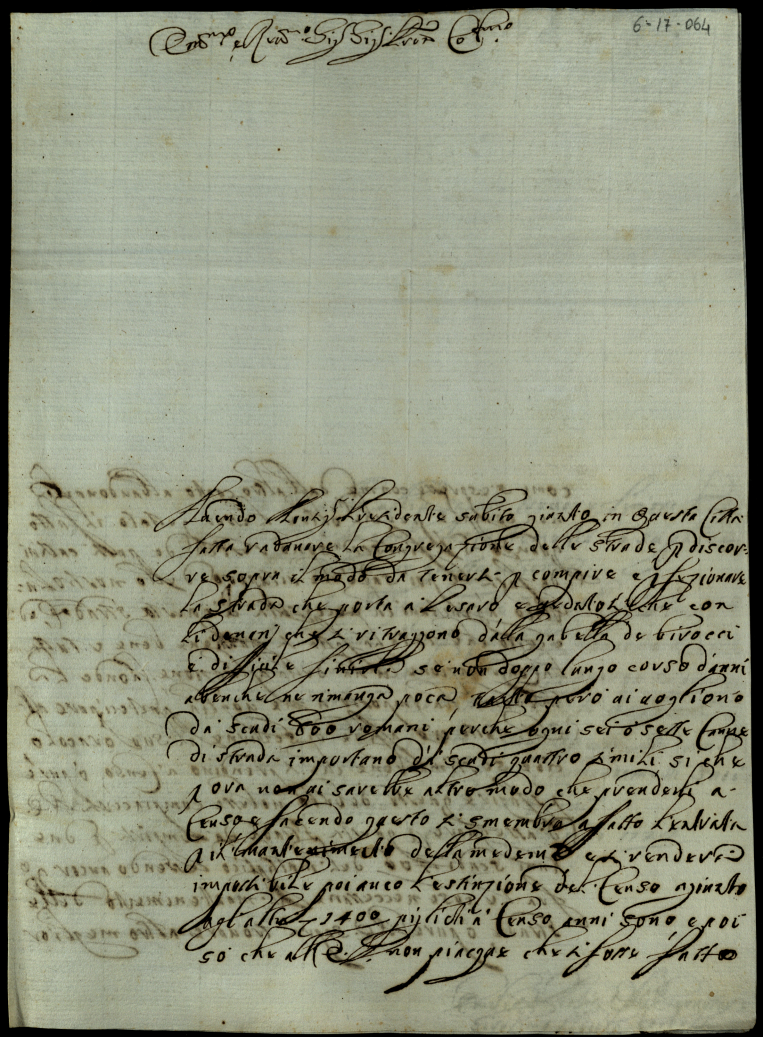 6-17-064
Em.mo e Rev.mo Sig. Sig. Pron. Col.mo
Havendo Mons.r Presidente subito gionto in questa Città
fatta radunare la Congregazione delle strade p discor-
re sopra il modo da tenersi p compire e p fezionare
la strada che porta a Pesaro e che con
li denari che si ritraggono dalla gabella de birocci
è difficile finirla se non doppo lungo corso d'anni
abenche ne rimanga poca, però ci vogliono
da scudi 800 romani, perche ogni sei ò sette Canne
di strada importano da scudi quattro simili si che
p ora non ci sarebbe altro modo che prenderli a
Censo e facendo questo si smembra affatto l'entrata
p il mantenimento della medema e si renderà
impossibile poi anco l'estinzione del Censo agionto
agl'altri 1400 pigliati à Censo anni sono, e poi
sò che all'E. V. non piacque che si fosse fatto